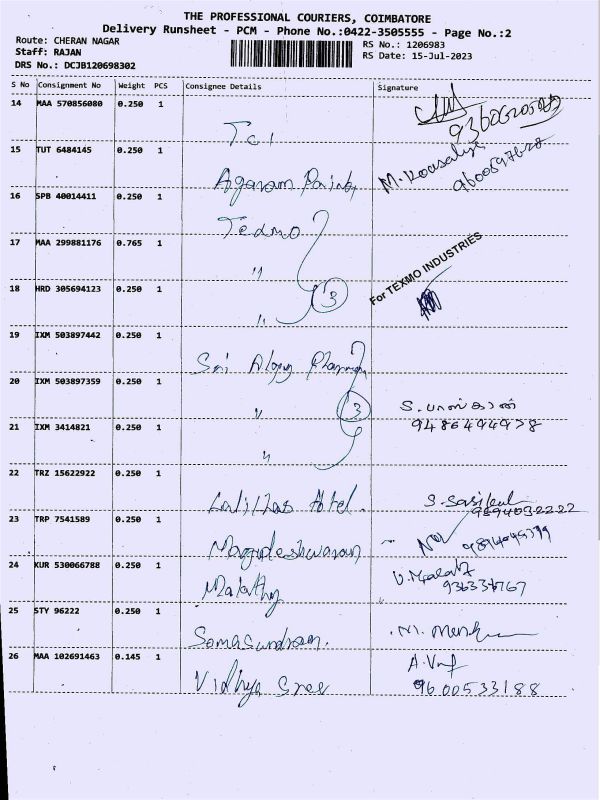 THE PROFESSIONAL COURIERS, COIMBATORE
Delivery Runsheet - PCM - Phone No.:0422-3505555 - Page No.:2
Route: CHERAN NAGAR
RS No.: 1206983
Staff: RAJAN
RS Date: 15-Jul-2023
DRS No.: DCJB120698302
S No Consignment No Weight PCS Consignee Details Signature
14 MAA 570856080 0.250 1
Tci
15 TUT 6484145 0.250 1
M. Kousalya
Agaram Paints
16 SPB 40014411 0.250 1
Texmo
17 MAA 299881176 0.765 1
"
For TEXMO INDUSTRIES
18 HRD 305694123 0.250 1
3
"
19 IXM 503897442 0.250 1
Sri
20 IXM 503897359 0.250 1
" 3
S. பாஸ்கரன்
21 IXM 3414821 0.250 1
9486494978
"
22 TRZ 15622922 0.250 1
Lalithas Hotel.
S. Sasikul
9894032222
23 TRP 7541589 0.250 1
Magudeshwaran
24 KUR 530066788 0.250 1
Malathy
25 STY 96222 0.250 1
Somasundram.
26 MAA 102691463 0.145 1
Vidhya Sree
9600533188